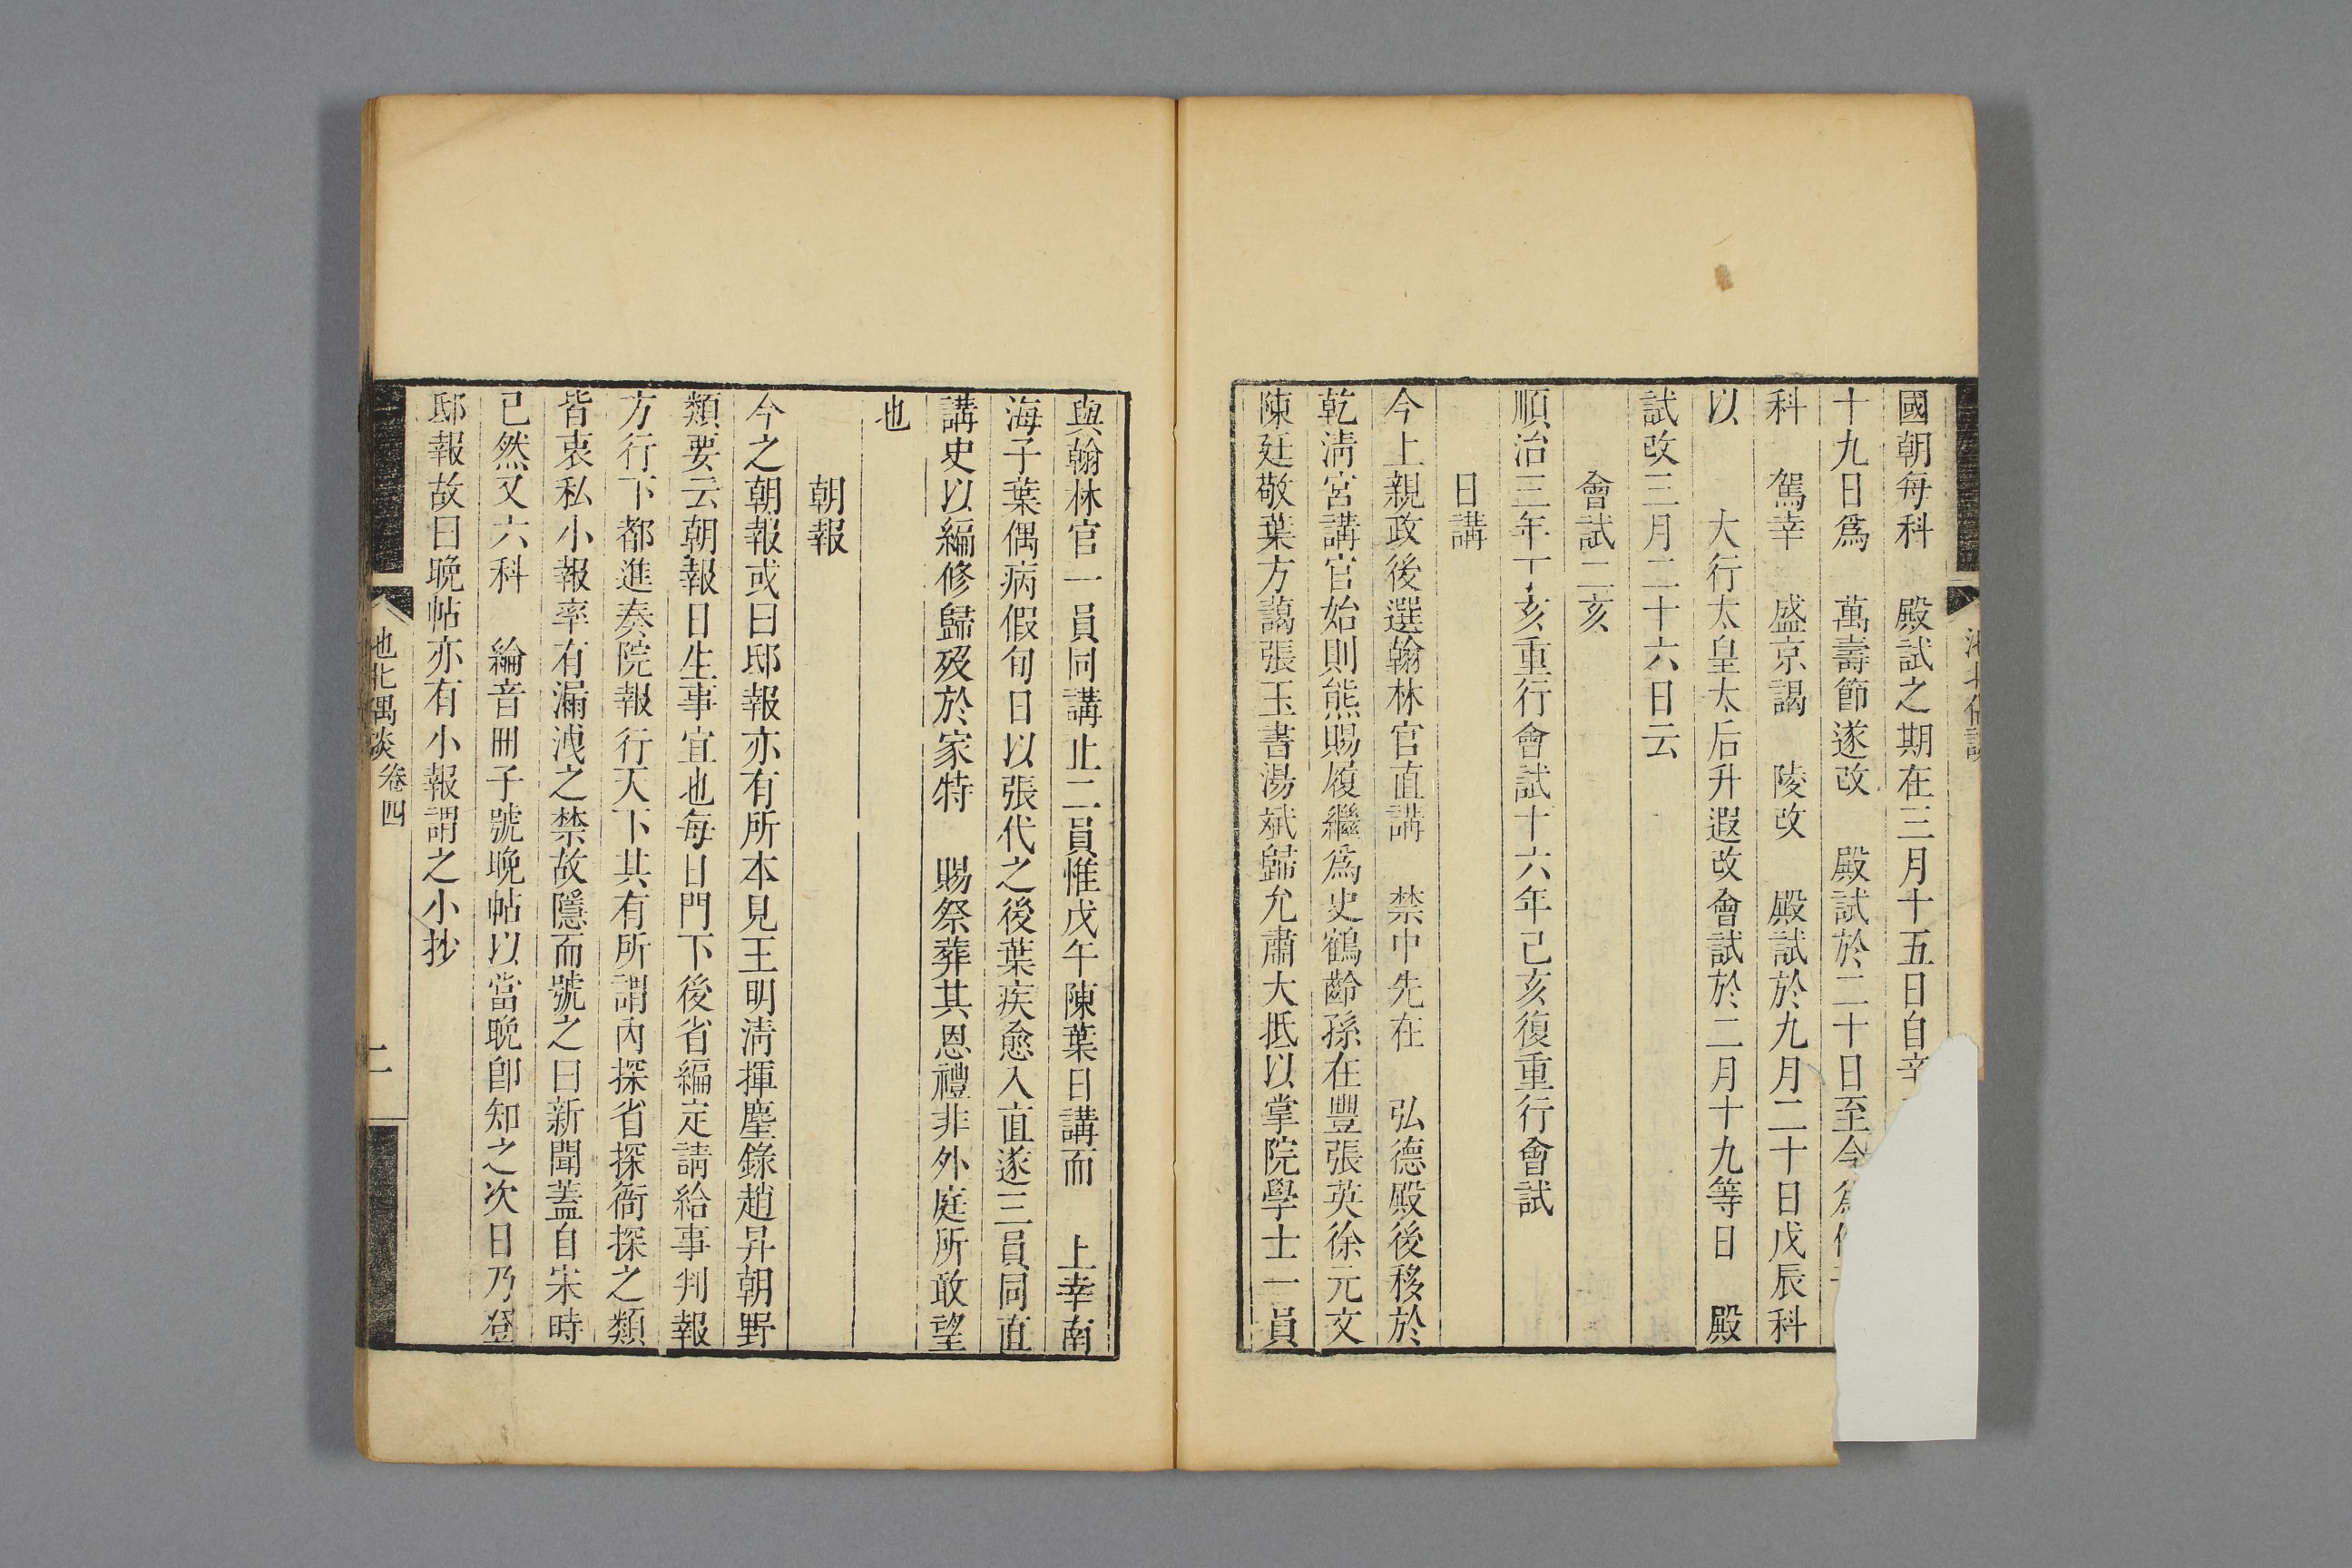 國朝每科 殿試之期在三月十五日自
十九日爲 萬壽節遂改 殿試於二十日至今
科 駕幸 盛京謁 陵改 殿試於九月二十日戊辰科
以 大行太皇太后升遐改會試於二月十九等日 殿
試改三月二十六日云
會試二亥
順治三年丁亥重行會試十六年己亥復重行會試
日講
今上親政後選翰林官直講 禁中先在 弘德殿後移於
乾淸宮講官始則熊賜履繼爲史鶴齡孫在豐張英徐元文
陳廷敬葉方藹張玉書湯斌歸允肅大抵以掌院學士一員
與翰林官一員同講止二員惟戊午陳葉日講而 上幸南
海子葉偶病假旬日以張代之後葉疾愈入直遂三員同直
講史以編修歸歿於家特 賜祭葬其恩禮非外庭所敢望
也
朝報
今之朝報或曰邸報亦有所本見王明淸揮塵錄趙昇朝野
類要云朝報日生事宜也每日門下後省編定請給事判報
方行下都進奏院報行天下其有所謂內探省探衙探之類
皆衷私小報率有漏洩之禁故隱而號之曰新聞蓋自宋時
已然又六科 綸音冊子號晚帖以當晚卽知之次日乃登
邸報故曰晚帖亦有小報謂之小抄
池北偶談
卷四
二